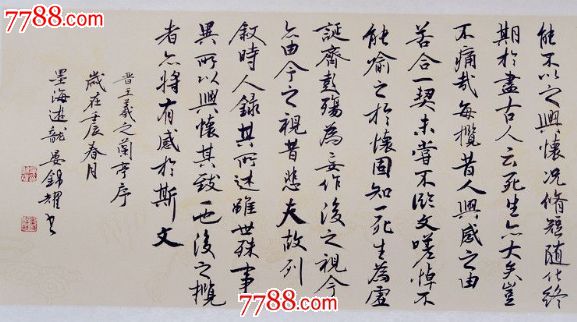 7788.com
7788.com
能不以之興懷况脩短随化終
期於盡古人云死生亦大矣豈
不痛哉每攬昔人興感之由
若合一契未嘗不臨文嗟悼不
能喻之於懷固知一死生為虛
誕齊彭殤為妄作後之視今
亦由今之視昔悲夫故列
敘時人錄其所述雖世殊事
異所以興懷其致一也後之攬
者亦將有感於斯文
晋王羲之蘭亭序
歲在壬辰春月
墨海遊龍晏錦耀書
7788.com